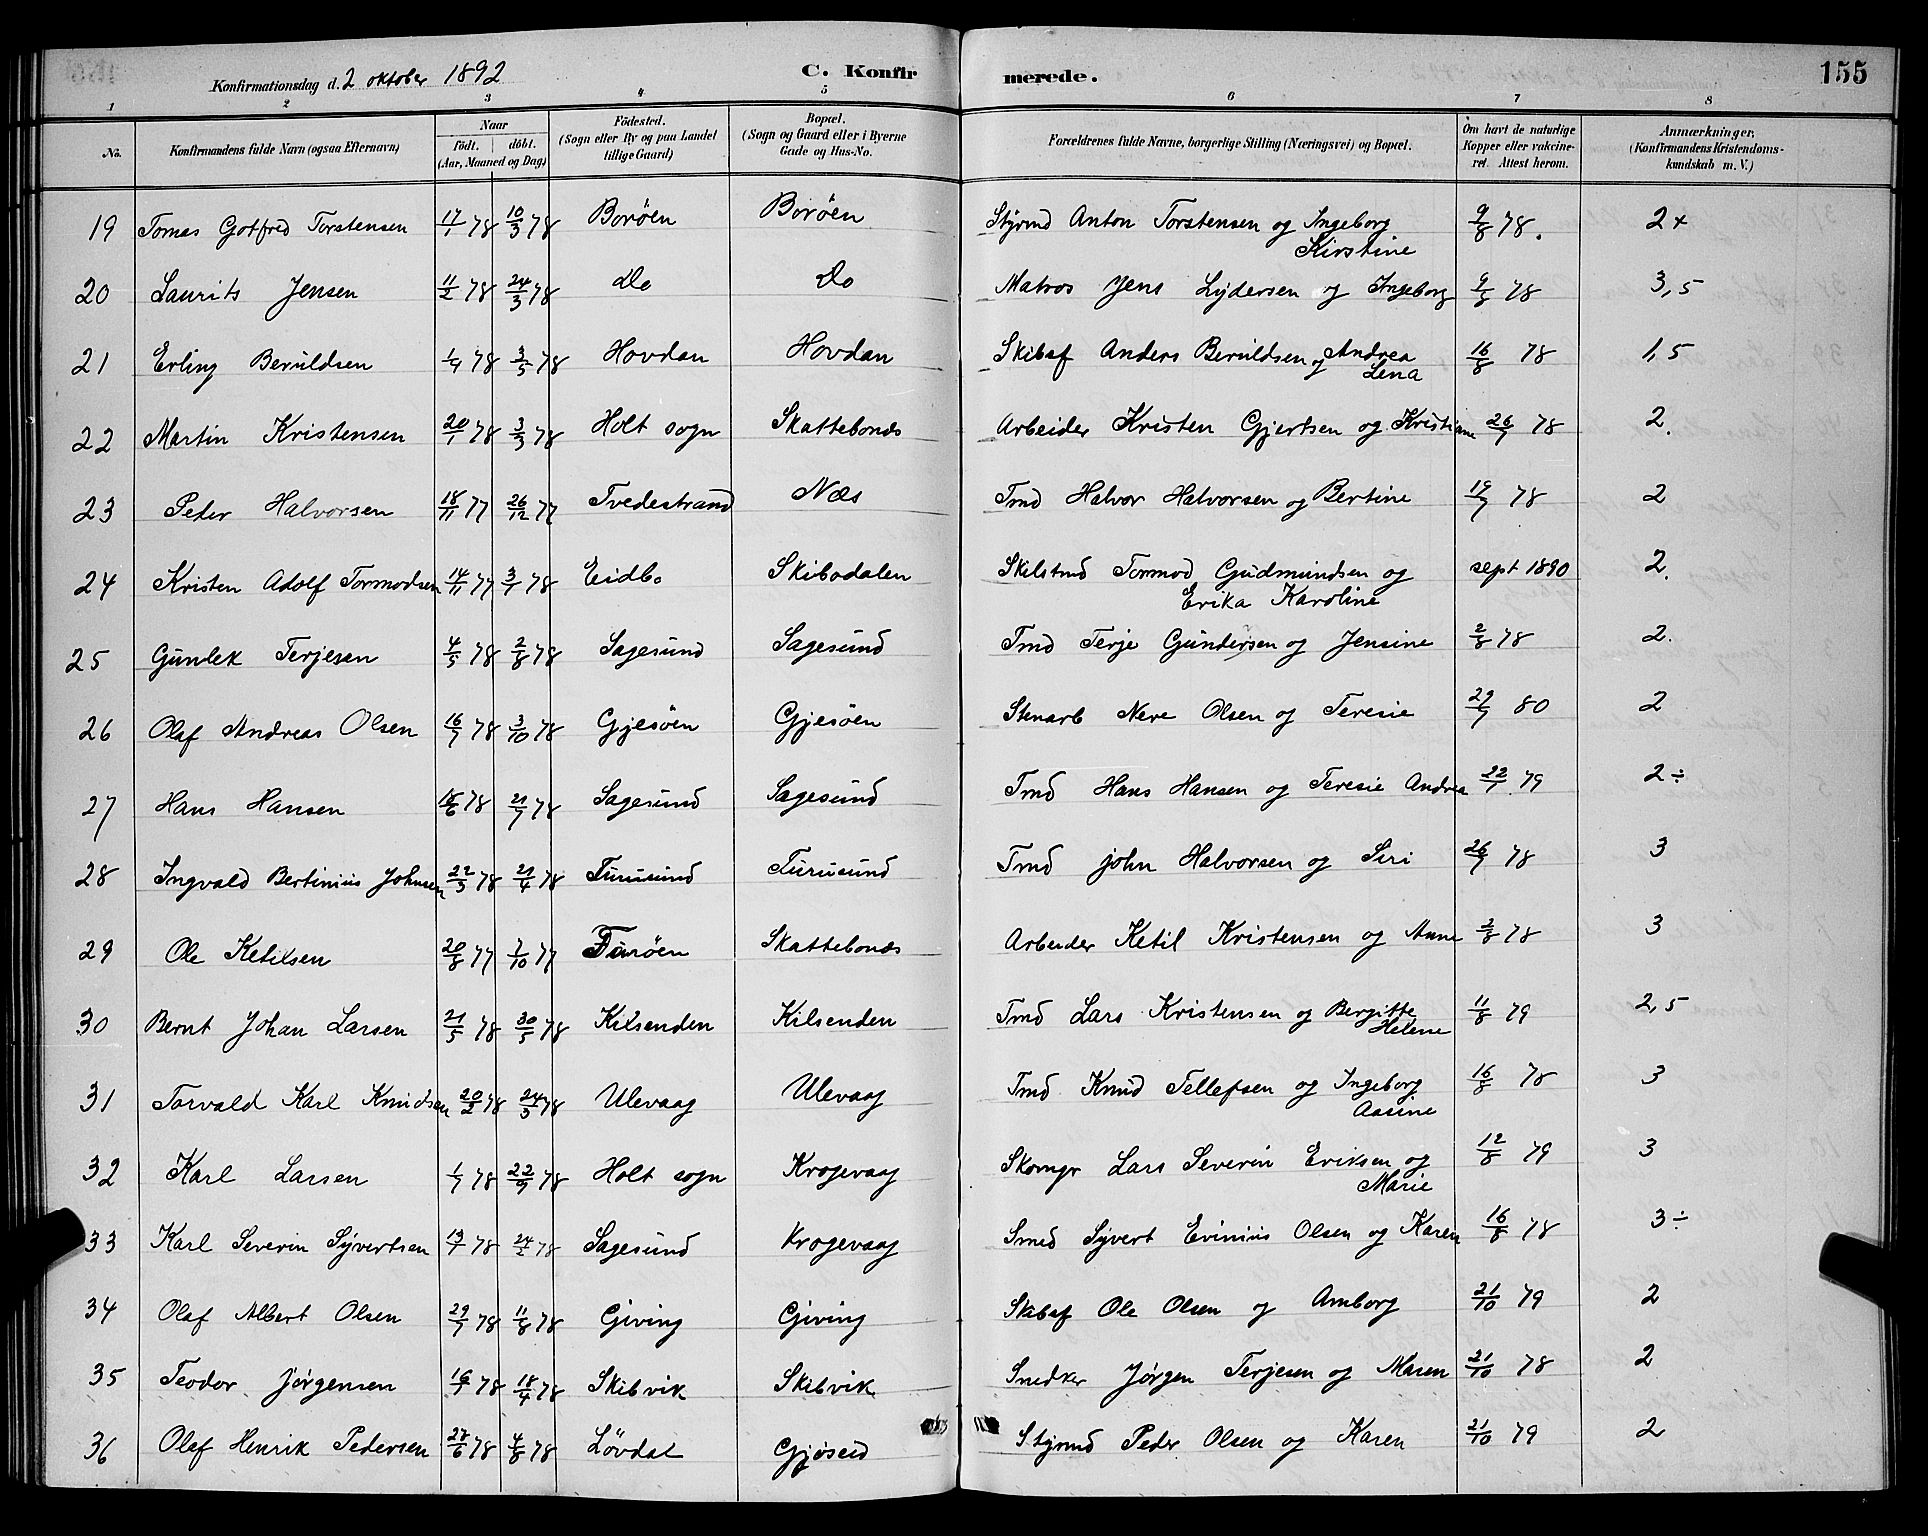 Konfirmationsdag d. 2 oktober 1892 C. Konfirmerede. 155
1 2 3 4 5 6 7 8
No. Konfirmandens fulde Navn (ogsaa Efternavn) Naar födt. döbt. (Aar, Maaned og Dag) Födested. (Sogn eller By og paa Landet tillige Gaard) Bopæl. (Sogn og Gaard eller i Byerne Gade og Hus-No. Forældrenes fulde Navne, borgerlige Stilling (Næringsvei) og Bopæl. Om havt de naturlige Kopper eller vakcineret. Attest herom. Anmærkninger, (Konfirmandens Kristendomskundskab m. V.)
19 Tomas Gotfred Torstensen 17/1 78 10/3 78 Boröen Boröen Styrmd Anton Torstensen og Ingeborg Kirstine 9/8 78. 2+
20 Laurits Jensen 11/2 78 24/3 78 do Do Matros Jens Lydersen og Ingeborg 9/8 78 3,5
21 Erling Beruldsen 1/4 78 3/5 78 Hovdan Hovdan Skibsf Anders Beruldsen og Andrea Lena 16/8 78 1,5
22 Martin Kristensen 20/1 78 3/3 78 Holt sogn Skattebonæs Arbeider Kristen Gjertsen og Kristiane 26/7 78 2.
23 Peder Halvorsen 18/11 77 26/12 77 Tvedestrand Næs Tmd Halvor Halvorsen og Bertine 19/7 78 2
24 Kristen Adolf Tormodsen 14/11 77 3/1 78 Eidbo Skibodalen Skilstmd Tormod Gudmundsen og Erika Karoline sept 1890 2.
25 Gunlek Terjesen 4/5 78 2/8 78 Sagesund Sagesund Tmd Terje Gundersen og Jensine 2/8 78 2.
26 Olaf Andreas Olsen 16/7 78 3/10 78 Gjesöen Gjesöen Stenarb Nere Olsen og Teresie 29/7 80 2
27 Hans Hansen 18/6 78 21/7 78 Sagesund Sagesund Tmd Hans Hansen og Teresie Andrea 22/7 79 2÷
28 Ingvald Bertinius Johnsen 22/3 78 21/4 78 Furusund Furusund Tmd john Halvorsen og Siri 26/7 78 3
29 Ole Ketilsen 20/8 77 7/10 77 Furöen Skattebonæs Arbeider Ketil Kristensen og Anne 2/8 78 3
30 Bernt Johan Larsen 21/5 78 30/5 78 Kilsenden Kilsenden Tmd Lars Kristensen og Bergitte Helene 11/8 79 2,5
31 Torvald Karl Knudsen 20/2 78 24/3 78 Ulevaag Ulevaag Tmd Knud Tellefsen og Ingeborg Aasine 16/8 78 3
32 Karl Larsen 1/7 78 22/9 78 Holt sogn Krogevaag Skomgr Lars Severin Eriksen og Marie 12/8 79 3
33 Karl Severin Syvertsen 13/1 78 24/2 78 Sagesund Krogevaag Smed Syvert Evinius Olsen og Karen 16/8 78 3÷
34 Olaf Albert Olsen 29/7 78 11/8 78 Giving Giving Skibsf Ole Olsen og Amborg 21/10 79 2
35 Teodor Jörgensen 16/1 78 18/4 78 Skibvik Skibvik Snedker Jørgen Terjesen og Maren 21/10 78 2
36 Olaf Henrik Pedersen 27/6 78 4/8 78 Lövdal Gjøseid Styrmd Peder Olsen og Karen 21/10 79 2